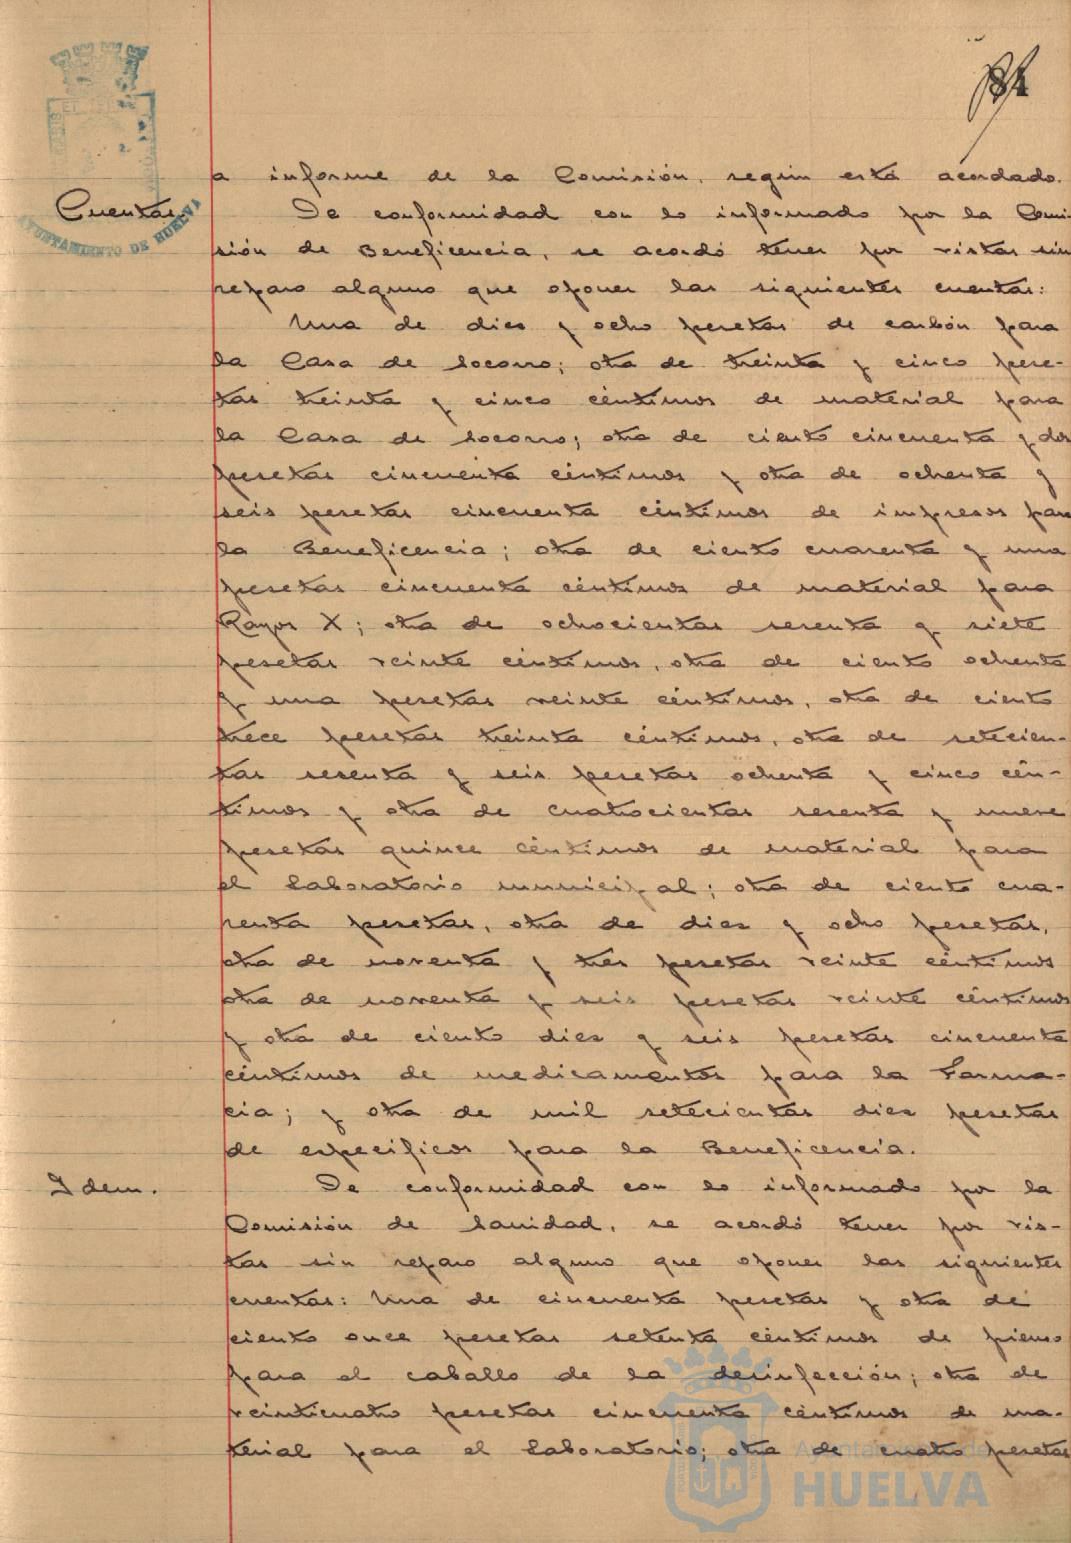 84
a informe de la Comisión, según está acordado.
Cuentas.
De conformidad con lo informado por la Comi-
sión de Beneficencia, se acordó tener por vistas sin
reparo alguno que oponer las siguientes cuentas:
Una de dies y ocho pesetas de carbón para
la Casa de Socorro; otra de treinta y cinco pese-
tas treinta y cinco céntimos de material para
la Casa de Socorro; otra de ciento cincuenta y dos
pesetas cincuenta céntimos y otra de ochenta y
seis pesetas cincuenta céntimos de impresos para
la Beneficencia; otra de ciento cuarenta y una
pesetas cincuenta céntimos de material para
Rayos X; otra de ochocientas sesenta y siete
pesetas veinte céntimos, otra de ciento ochenta
y una pesetas veinte céntimos, otra de ciento
trece pesetas treinta céntimos, otra de setecien-
tas sesenta y seis pesetas ochenta y cinco cén-
timos y otra de cuatrocientas sesenta y nueve
pesetas quince céntimos de material para
el Laboratorio municipal; otra de ciento cua-
renta pesetas, otra de diez y ocho pesetas,
otra de noventa y tres pesetas veinte céntimos
otra de noventa y seis pesetas veinte céntimos
y otra de ciento diez y seis pesetas cincuenta
céntimos de medicamentos para la Farma-
cia; y otra de mil setecientas diez pesetas
de específicos para la Beneficencia.
Idem.
De conformidad con lo informado por la
Comisión de Sanidad, se acordó tener por vis-
tas sin reparo alguno que oponer las siguientes
cuentas: Una de cincuenta pesetas y otra de
ciento once pesetas setenta céntimos de pienso
para el caballo de la desinfección; otra de
veinticuatro pesetas cincuenta céntimos de ma-
terial para el Laboratorio; otra de cuatro pesetas
AYUNTAMIENTO DE HUELVA
Ayuntamiento de
HUELVA